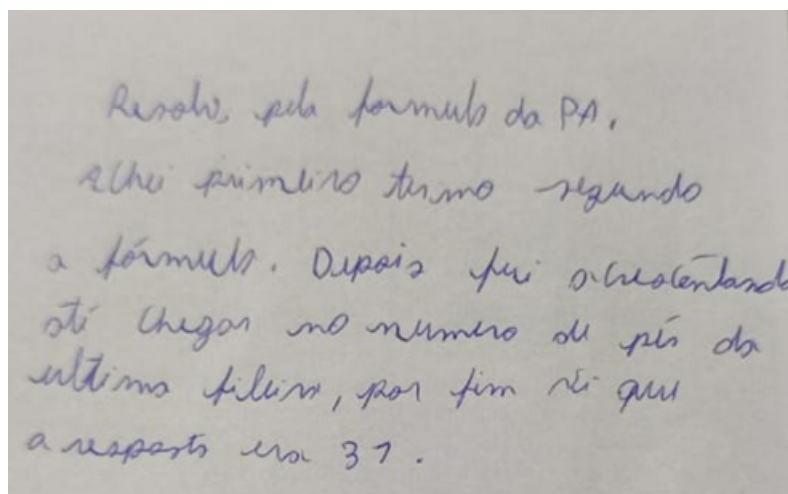 Resolvi pela formula da PA.
achei primeiro termo segundo
a fórmula. Depois fui acrescentando
até chegar no numero de pés da
ultima fileira, por fim vi que
a resposta era 31.